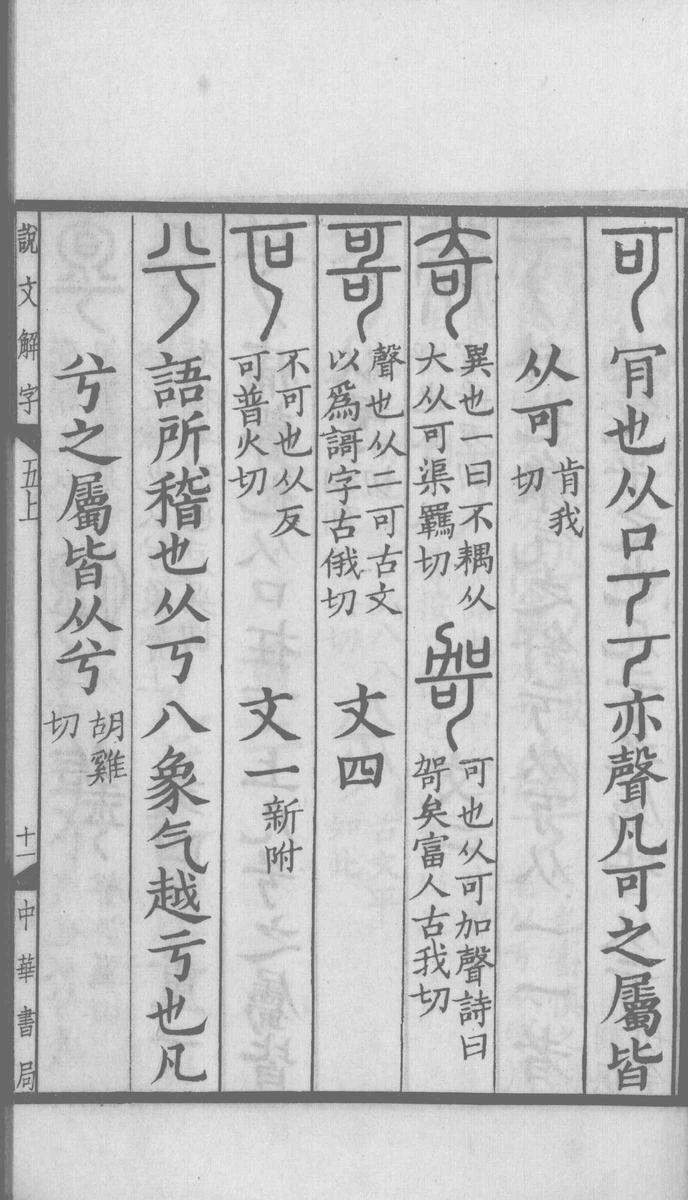 可 肎也从口丂丂亦聲凡可之屬皆
从可肯我切
奇 異也一曰不耦从大从可渠羈切 哿 可也从可加聲詩曰哿矣富人古我切
哥 聲也从二可古文以爲謌字古俄切 文四
叵 不可也从反可普火切 文一新附
兮 語所稽也从丂八象气越亏也凡
兮之屬皆从兮胡雞切
說文解字 五上 十一 中華書局